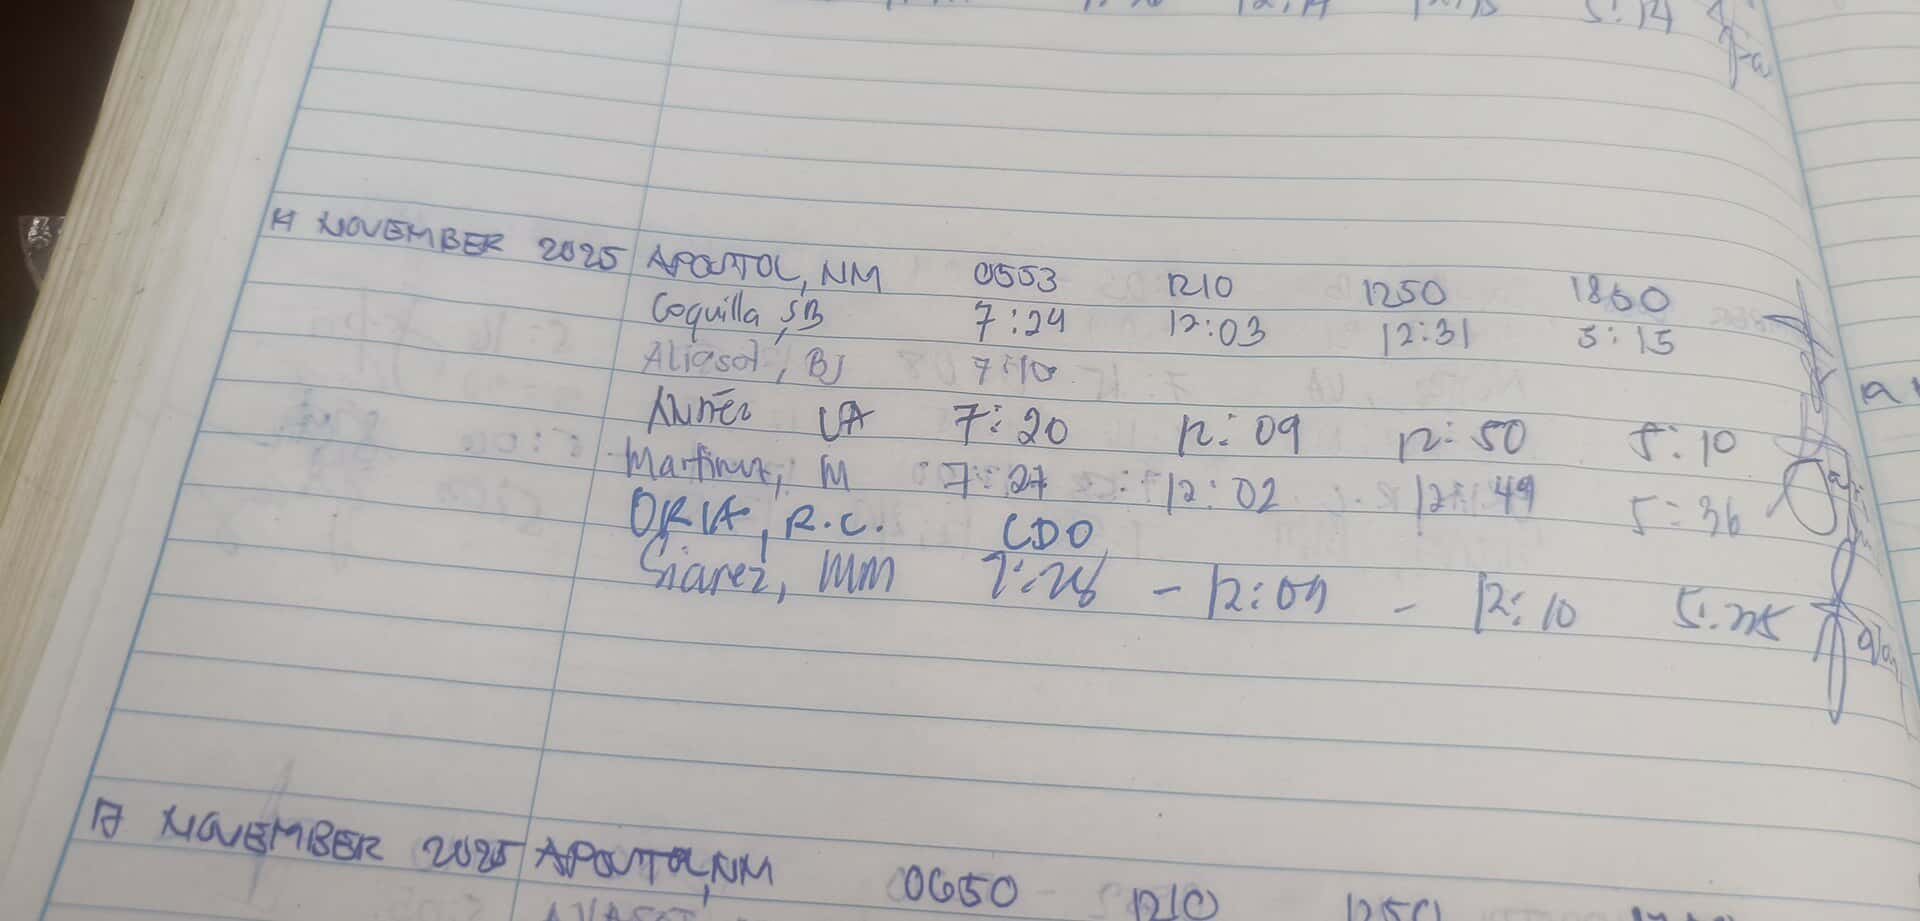 12:14 12:15 5:14
14 NOVEMBER 2025 APOSTOL, NM 0553 1210 1250
Coquilla, SB 7:24 12:03 12:31 5:15
Aliasot, BJ 7:10
VA 7:20 12:09 12:50 5:10
Martinez, M 7:27 12:02 12:49 5:36
ORIA, R.C. CDO
Suarez, MM 7:28 - 12:09 - 12:10 5:25
17 NOVEMBER 2025 APOSTOL, NM 0650 1210 1250